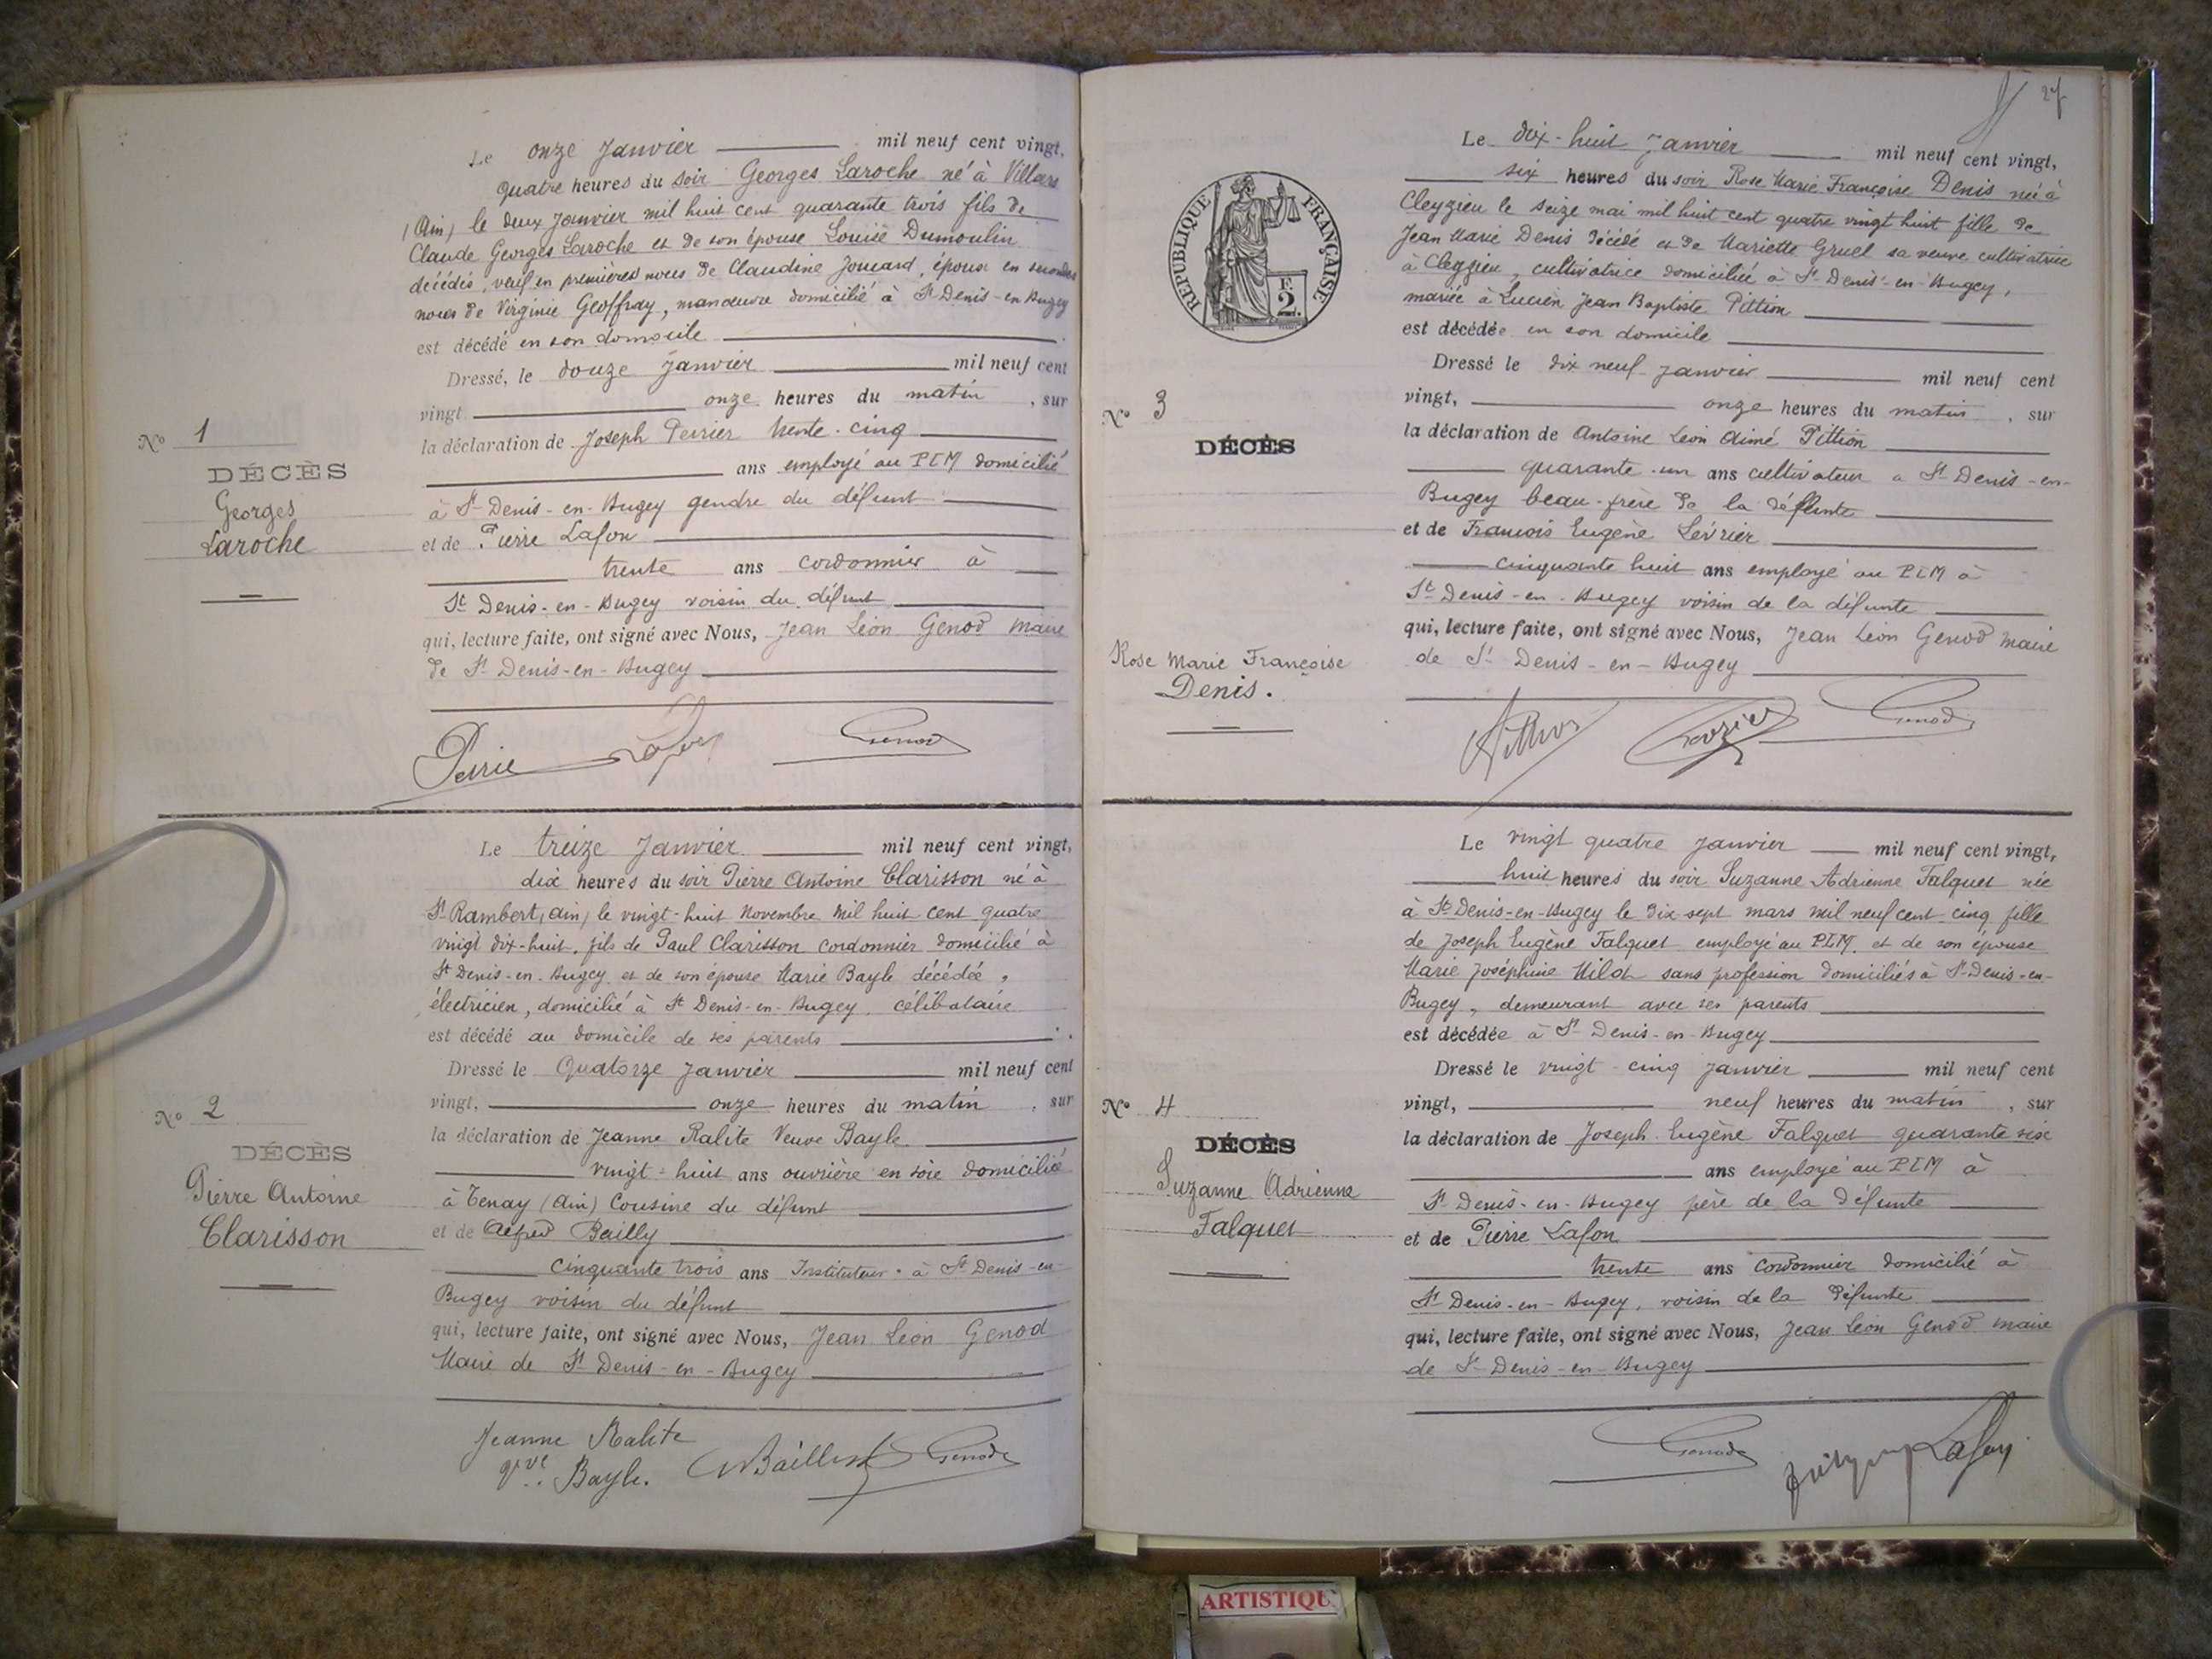 Le onze Janvier mil neuf cent vingt,
quatre heures du soir Georges Laroche né à Villars
(Ain) le deux Janvier mil huit cent quarante trois fils de
Claude Georges Laroche et de son épouse Louise Dumoulin
décédés, veuf en premières noces de Claudine Joucard, époux en secondes
noces de Virginie Geoffray, manœuvre domicilié à St Denis-en-Bugey
est décédé en son domicile
Dressé, le douze Janvier mil neuf cent
vingt onze heures du matin, sur
la déclaration de Joseph Perrier trente-cinq
ans employé au PLM domicilié
à St Denis-en-Bugey gendre du défunt
et de Pierre Lafon
trente ans cordonnier à
St Denis-en-Bugey voisin du défunt
qui, lecture faite, ont signé avec Nous, Jean Léon Genod Maire
de St Denis-en-Bugey
N° 1
DÉCÈS
Georges
Laroche
Perrie Lafon Genod
Le treize Janvier mil neuf cent vingt,
dix heures du soir Pierre Antoine Clarisson né à
St Rambert (Ain) le vingt-huit Novembre mil huit cent quatre
vingt dix-huit, fils de Paul Clarisson cordonnier domicilié à
St Denis-en-Bugey et de son épouse Marie Bayle décédée,
électricien, domicilié à St Denis-en-Bugey, célibataire
est décédé au domicile de ses parents
Dressé le Quatorze Janvier mil neuf cent
vingt, onze heures du matin, sur
la déclaration de Jeanne Ralite Veuve Bayle
vingt-huit ans ouvrière en soie domiciliée
à Tenay (Ain) Cousine du défunt
et de Alfred Bailly
Cinquante trois ans Instituteur à St Denis-en
Bugey voisin du défunt
qui, lecture faite, ont signé avec Nous, Jean Léon Genod
Maire de St Denis-en-Bugey
N° 2
DÉCÈS
Pierre Antoine
Clarisson
Jeanne Ralite
Vve Bayle. Genod
27
Le dix-huit Janvier mil neuf cent vingt,
six heures du soir Rose Marie Françoise Denis née à
Cleyzieu le seize mai mil huit cent quatre vingt huit fille de
Jean Marie Denis décédé et de Mariette Gruel sa veuve cultivatrice
à Cleyzieu, cultivatrice domiciliée à St Denis-en-Bugey,
mariée à Lucien Jean Baptiste Pittion
est décédée en son domicile
Dressé le dix neuf Janvier mil neuf cent
vingt, onze heures du matin, sur
la déclaration de Antoine Léon Aimé Pittion
quarante-un ans cultivateur a St Denis-en-
Bugey beau-frère de la défunte
et de François Eugène Lévrier
cinquante huit ans employé au PLM à
St Denis-en-Bugey voisin de la défunte
qui, lecture faite, ont signé avec Nous, Jean Léon Genod Maire
de St Denis-en-Bugey
RÉPUBLIQUE FRANÇAISE
F.
2.
N° 3
DÉCÈS
Rose Marie Françoise
Denis.
Pittion Levrier Genod
Le vingt quatre Janvier mil neuf cent vingt,
huit heures du soir Suzanne Adrienne Falquet née
à St Denis-en-Bugey le dix-sept mars mil neuf cent cinq fille
de Joseph Eugène Falquet employé au PLM et de son épouse
Marie Joséphine Milot sans profession domiciliés à St Denis-en-
Bugey, demeurant avec ses parents
est décédée à St Denis-en-Bugey
Dressé le vingt-cinq Janvier mil neuf cent
vingt, neuf heures du matin, sur
la déclaration de Joseph Eugène Falquet quarante six
ans employé au PLM à
St Denis-en-Bugey père de la défunte
et de Pierre Lafon
trente ans cordonnier domicilié à
St Denis-en-Bugey, voisin de la défunte
qui, lecture faite, ont signé avec Nous, Jean Léon Genod Maire
de St Denis-en-Bugey
N° 4
DÉCÈS
Suzanne Adrienne
Falquet
Genod Lafon
ARTISTIQU